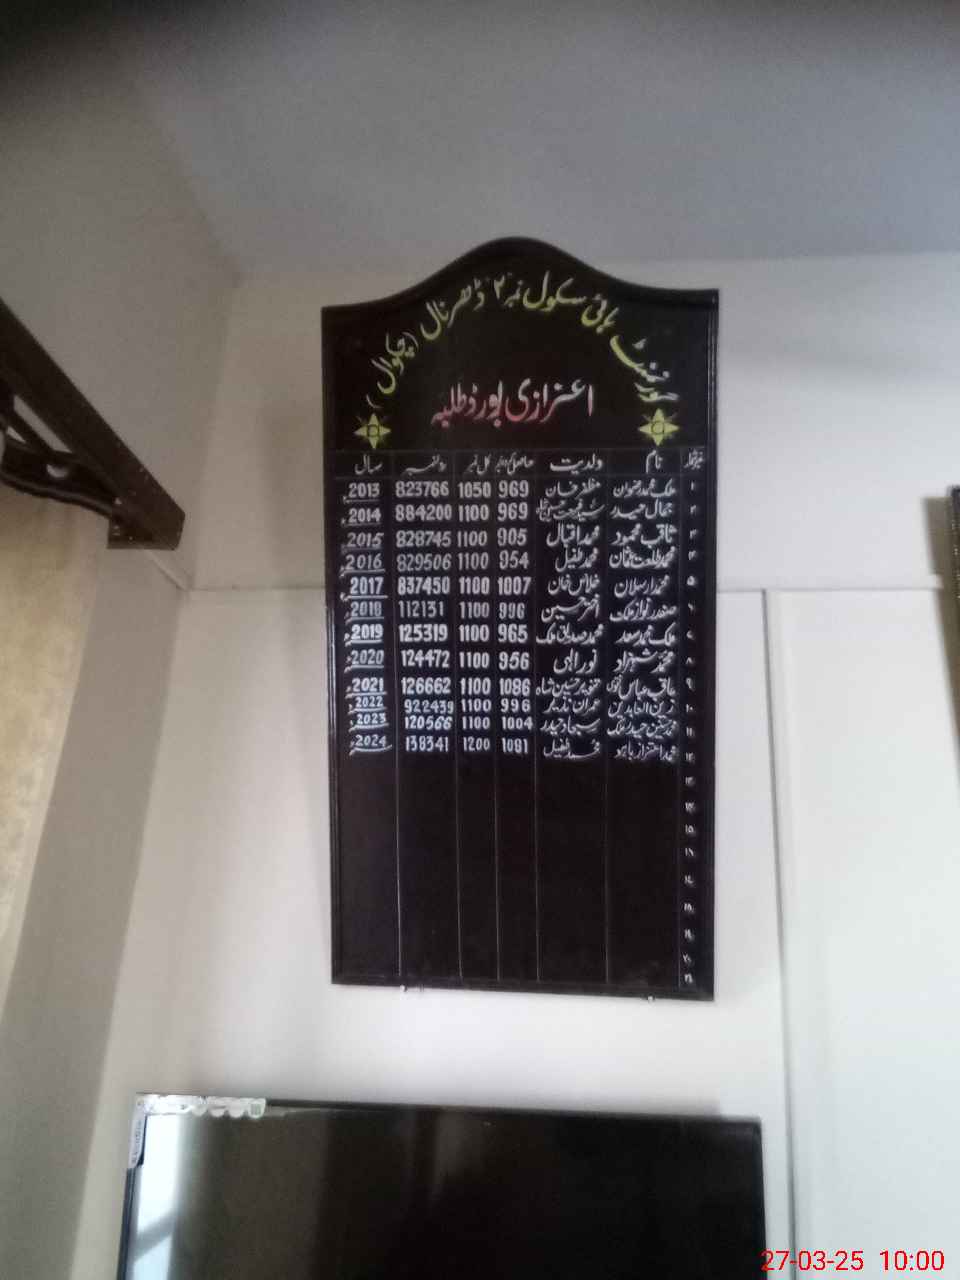 گورنمنٹ ہائی سکول نمبر ۲ ڈھرنال (چکوال)
اعزازی بورڈ طلبہ
نمبر شمار نام ولدیت حاصل کردہ نمبر کل نمبر رولنمبر سال
۱ ملک محمد رضوان مظفر خان 969 1050 823766 2013ء
۲ جمال حیدر 969 1100 884200 2014ء
۳ ثاقب محمود محمد اقبال 905 1100 828745 2015ء
۴ محمد طلعت عثمان محمد طفیل 954 1100 829506 2016ء
۵ محمد ارسلان خلاص خان 1007 1100 837450 2017ء
۶ صفدر نواز ملک اختر حسین 996 1100 112131 2018ء
۷ ملک محمد سعد محمد صدیق ملک 965 1100 125319 2019ء
۸ محمد شہزاد نور الہی 956 1100 124472 2020ء
۹ عاقب عباس نقوی تنویر حسین شاہ 1086 1100 126662 2021ء
۱۰ زین العابدین عمران نذیر 996 1100 922439 2022ء
۱۱ حیدر ملک سجاد حیدر 1004 1100 120566 2023ء
۱۲ محمد اعتزاز بابر محمد طفیل 1081 1200 138341 2024ء
۱۳
۱۴
۱۵
۱۶
۱۷
۱۸
۱۹
۲۰
۲۱
27-03-25 10:00